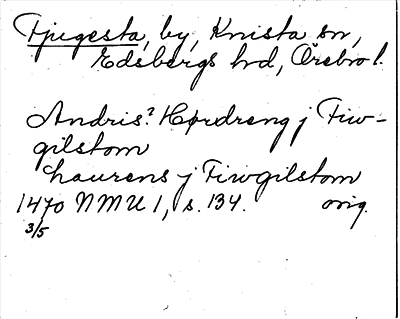 Tjugesta, by, Knista sn,
Edsbergs hd, Örebro l.
Andris? Hordreng j Fiw-
gilstom
Laurens j Fiwgilstom
1470 NMU 1, s. 134. orig.
3/5